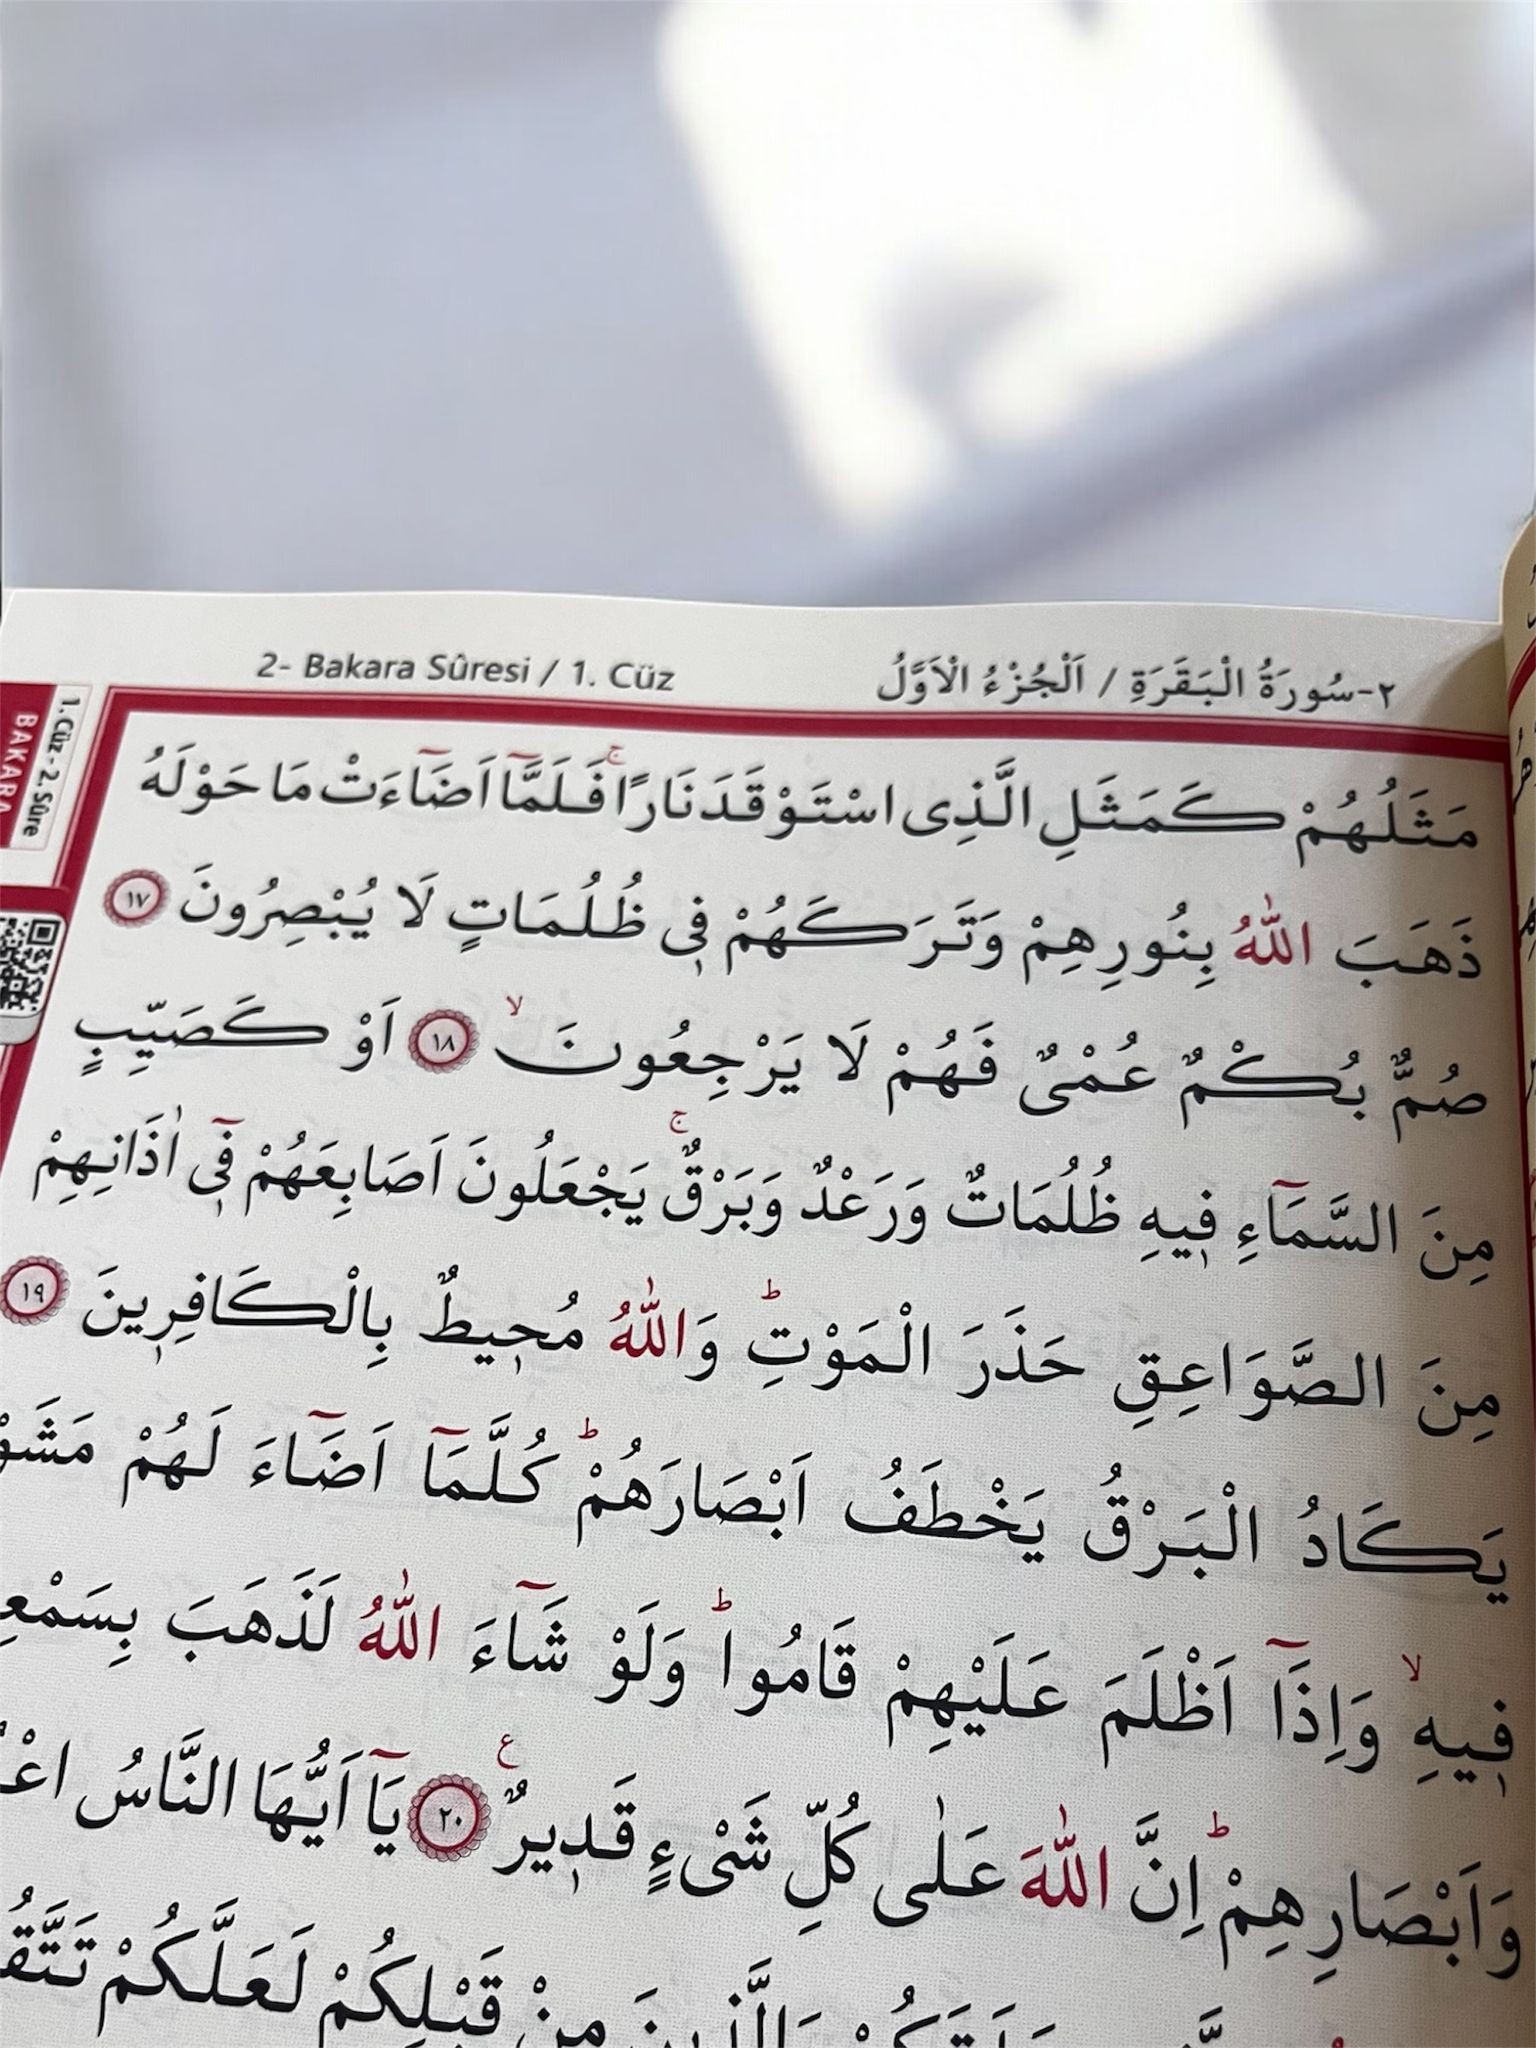 2- Bakara Sûresi / 1. Cüz
٢-سُورَةُ الْبَقَرَةِ / اَلْجُزْءُ الْاَوَّلُ
1. Cüz - 2. Sûre
BAKARA
مَثَلُهُمْ كَمَثَلِ الَّذِى اسْتَوْقَدَ نَارًاۚ فَلَمَّٓا اَضَٓاءَتْ مَا حَوْلَهُ
ذَهَبَ اللّٰهُ بِنُورِهِمْ وَتَرَكَهُمْ فٖى ظُلُمَاتٍ لَا يُبْصِرُونَ ١٧
صُمٌّ بُكْمٌ عُمْىٌ فَهُمْ لَا يَرْجِعُونَۙ ١٨ اَوْ كَصَيِّبٍ
مِنَ السَّمَٓاءِ فٖيهِ ظُلُمَاتٌ وَرَعْدٌ وَبَرْقٌۚ يَجْعَلُونَ اَصَابِعَهُمْ فٖٓى اٰذَانِهِمْ
مِنَ الصَّوَاعِقِ حَذَرَ الْمَوْتِؕ وَاللّٰهُ مُحٖيطٌ بِالْكَافِرٖينَ ١٩
يَكَادُ الْبَرْقُ يَخْطَفُ اَبْصَارَهُمْؕ كُلَّمَٓا اَضَٓاءَ لَهُمْ مَشَوْ
فٖيهِۙ وَاِذَٓا اَظْلَمَ عَلَيْهِمْ قَامُواؕ وَلَوْ شَٓاءَ اللّٰهُ لَذَهَبَ
وَاَبْصَارِهِمْؕ اِنَّ اللّٰهَ عَلٰى كُلِّ شَىْءٍ قَدٖيرٌ ٢٠ يَٓا اَيُّهَا النَّاسُ
مِنْ قَبْلِكُمْ لَعَلَّكُمْ